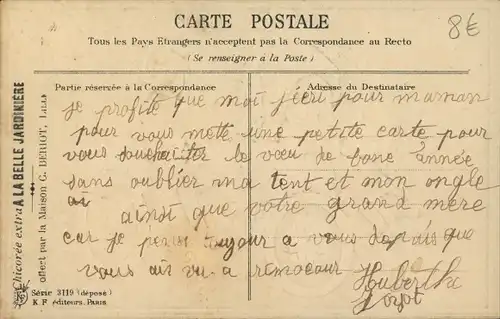 8€
CARTE POSTALE
Tous les Pays Etrangers n'acceptent pas la Correspondance au Recto
(Se renseigner à la Poste)
Partie réservée à la Correspondance
Adresse du Destinataire
je profite que moi jécri pour maman
pour vous mette une petite carte pour
vous souchaiter le vœu de bone année
sans oublier ma tent et mon ongle
ainsi que votre grand mère
car je pense toujour a vous depais que
vous ai vu a remocour
Huberthe
Chicorée extra A LA BELLE JARDINIÈRE
offert par la Maison C. BERIOT, Lille
Série 3119 (déposé)
K. F éditeurs, Paris